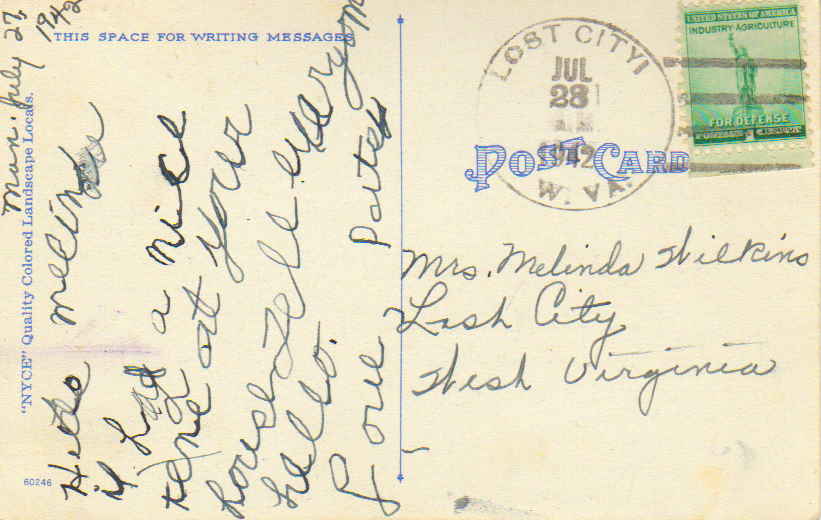 THIS SPACE FOR WRITING MESSAGES
Mon. July 27,
1942
Hello Melinda
I had a nice
time at your
house Tell everyone
hello.
Love
"NYCE" Quality Colored Landscape Locals.
60246
LOST CITY
JUL
28
A.M.
1942
W. VA.
UNITED STATES OF AMERICA
INDUSTRY-AGRICULTURE
FOR DEFENSE
POST CARD
Mrs. Melinda Wilkins
Lost City
West Virginia